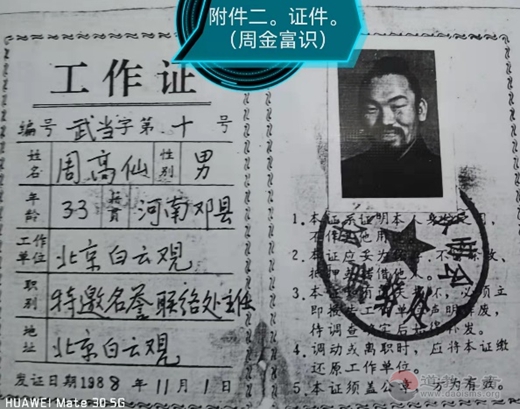 附件二。证件。
(周金富识)
工作证
编号 武当字第.十 号
姓名 周高仙 性别 男
年龄 33 籍贯 河南邓县
工作单位 北京白云观
职别 特邀名誉联络处主任
地址 北京白云观
发证日期1988年11月1日
1.本证系证明本人身
不作 用
2.本证应妥为 不
抵押 借他人
3.本 坏,必须立
即报告工作单 声明作废,
待调查 实后 补发.
4.调动或离职时,应将本证缴
还原工作单位.
5.本证须盖公章方为有效.
HUAWEI Mate 30 5G
道教之音
www.daoisms.org